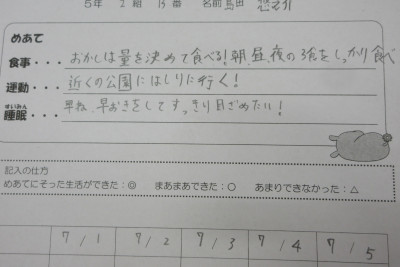 5年 2組 13番 名前 島田
めあて
食事・・・おかしは量を決めて食べる!朝、昼、夜の3食をしっかり食べ
運動・・・近くの公園にはしりに行く!
すいみん
睡眠・・・早ね、早おきをしてすっきり目ざめたい!
記入の仕方
めあてにそった生活ができた:◎ まあまあできた:○ あまりできなかった:△
7/1 7/2 7/3 7/4 7/5